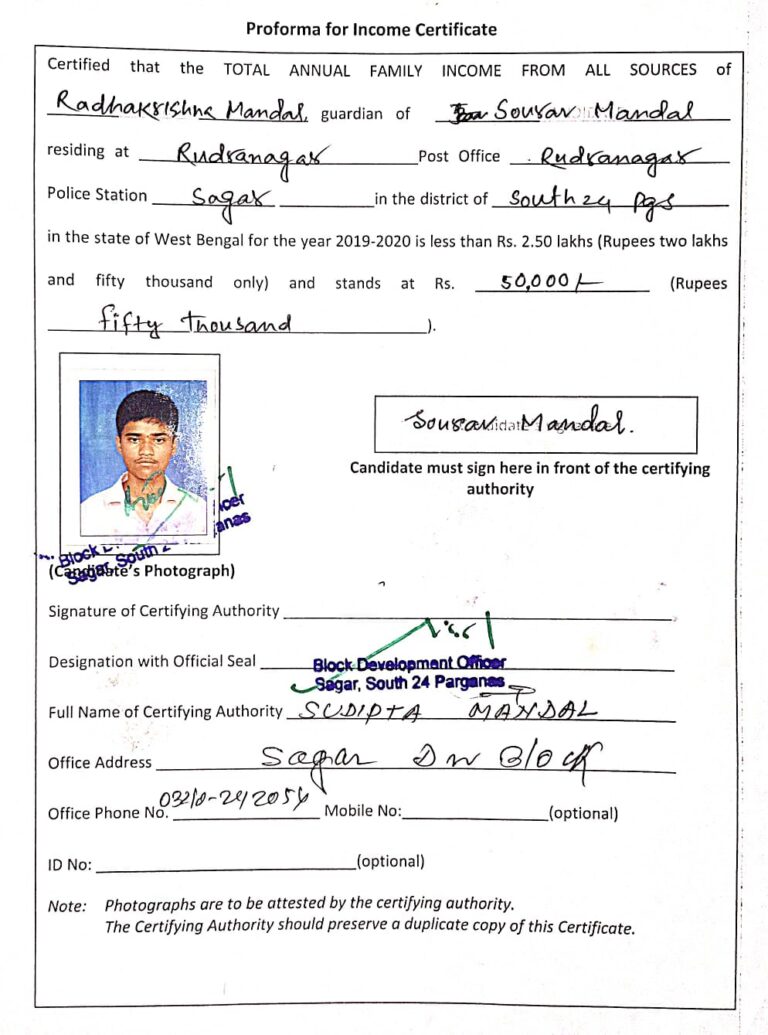 Proforma for Income Certificate
Certified that the TOTAL ANNUAL FAMILY INCOME FROM ALL SOURCES of
Radhakrishna Mandal, guardian of Sourav Mandal
residing at Rudranagar Post Office Rudranagar
Police Station Sagar in the district of South 24 pgs
in the state of West Bengal for the year 2019-2020 is less than Rs. 2.50 lakhs (Rupees two lakhs
and fifty thousand only) and stands at Rs. 50,000/- (Rupees
fifty thousand ).
Sourav Mandal.
Candidate must sign here in front of the certifying
authority
Block
Sagar, South 2
icer
anas
(Candidate's Photograph)
Signature of Certifying Authority
Designation with Official Seal Block Development Officer
Sagar, South 24 Parganas
Full Name of Certifying Authority SUDIPTA MANDAL
Office Address Sagar Dev Block
Office Phone No. Mobile No: (optional)
ID No: (optional)
Note: Photographs are to be attested by the certifying authority.
The Certifying Authority should preserve a duplicate copy of this Certificate.